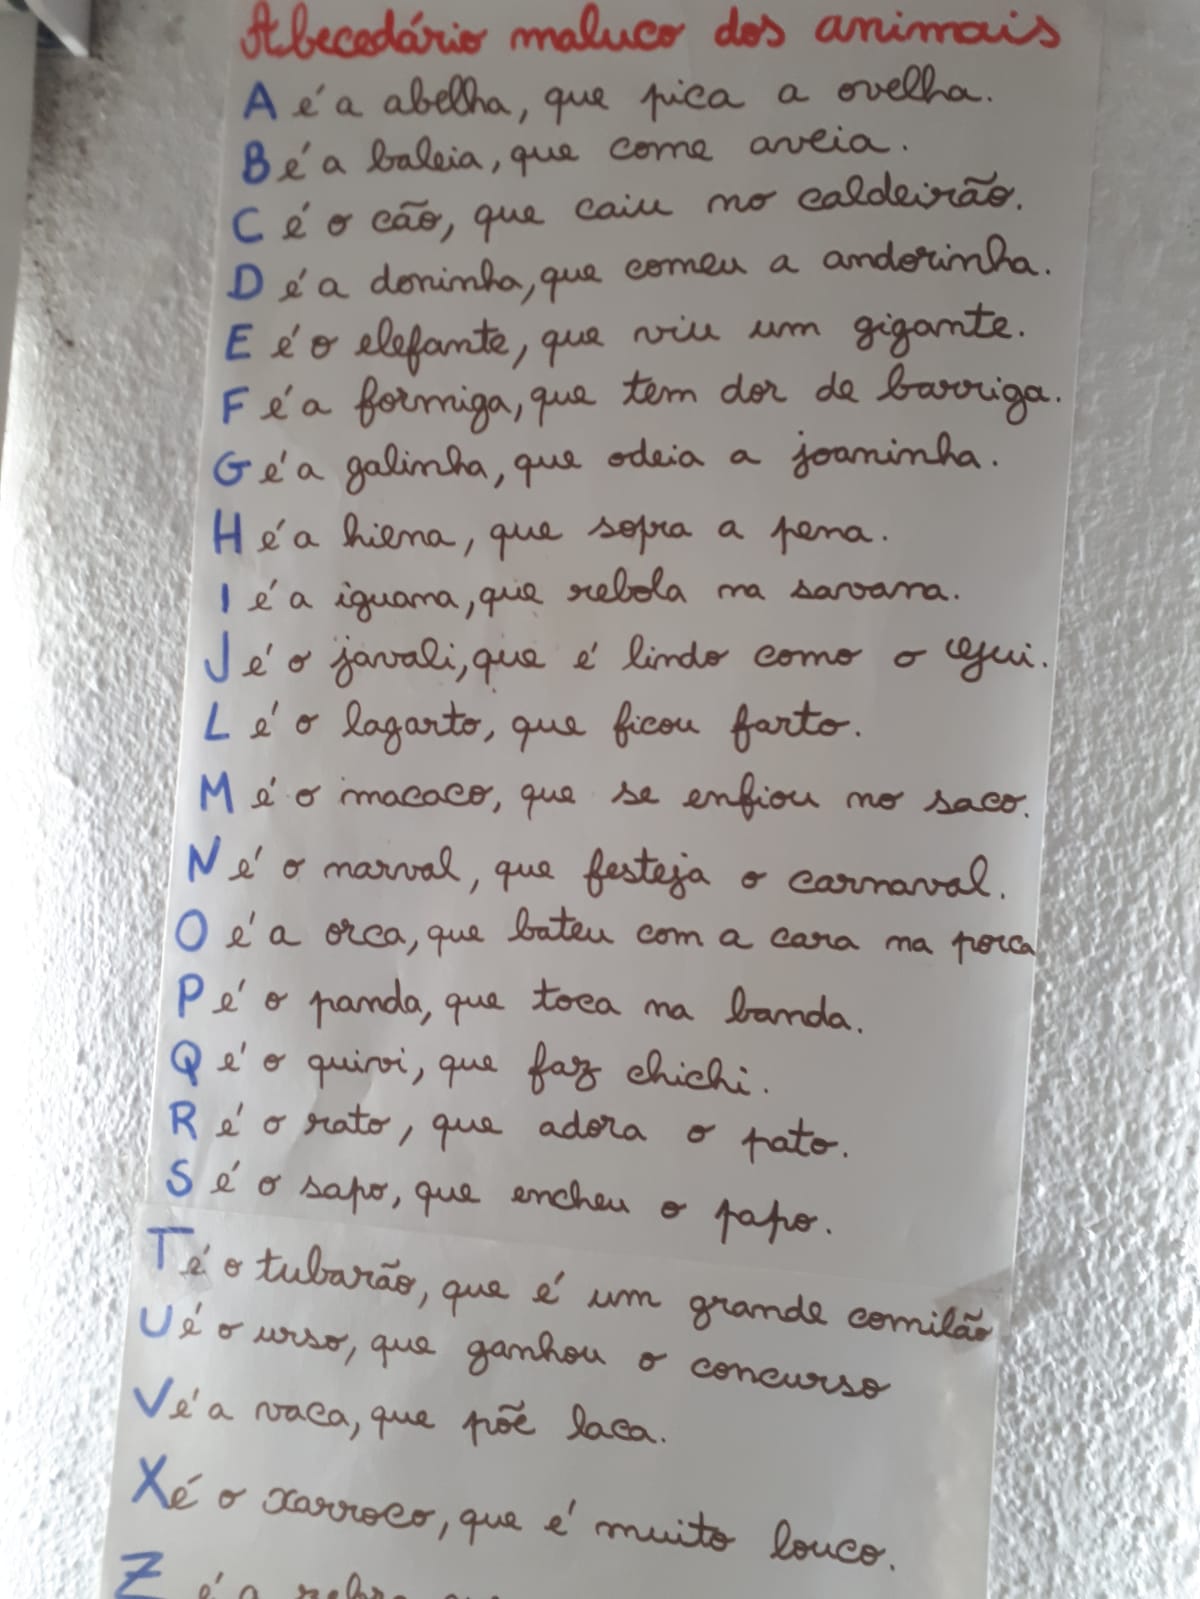 Abecedário maluco dos animais
A é a abelha, que pica a ovelha.
B é a baleia, que come aveia.
C é o cão, que caiu no caldeirão.
D é a doninha, que comeu a andorinha.
E é o elefante, que viu um gigante.
F é a formiga, que tem dor de barriga.
G é a galinha, que odeia a joaninha.
H é a hiena, que sopra a pena.
I é a iguana, que rebola na savana.
J é o javali, que é lindo como o
L é o lagarto, que ficou farto.
M é o macaco, que se enfiou no saco.
N é o narval, que festeja o carnaval.
O é a orca, que bateu com a cara na porca
P é o panda, que toca na banda.
Q é o quivi, que faz chichi.
R é o rato, que adora o pato.
S é o sapo, que encheu o papo.
T é o tubarão, que é um grande comilão
U é o urso, que ganhou o concurso
V é a vaca, que põe laca.
X é o xarroco, que é muito louco.
Z é a zebra que